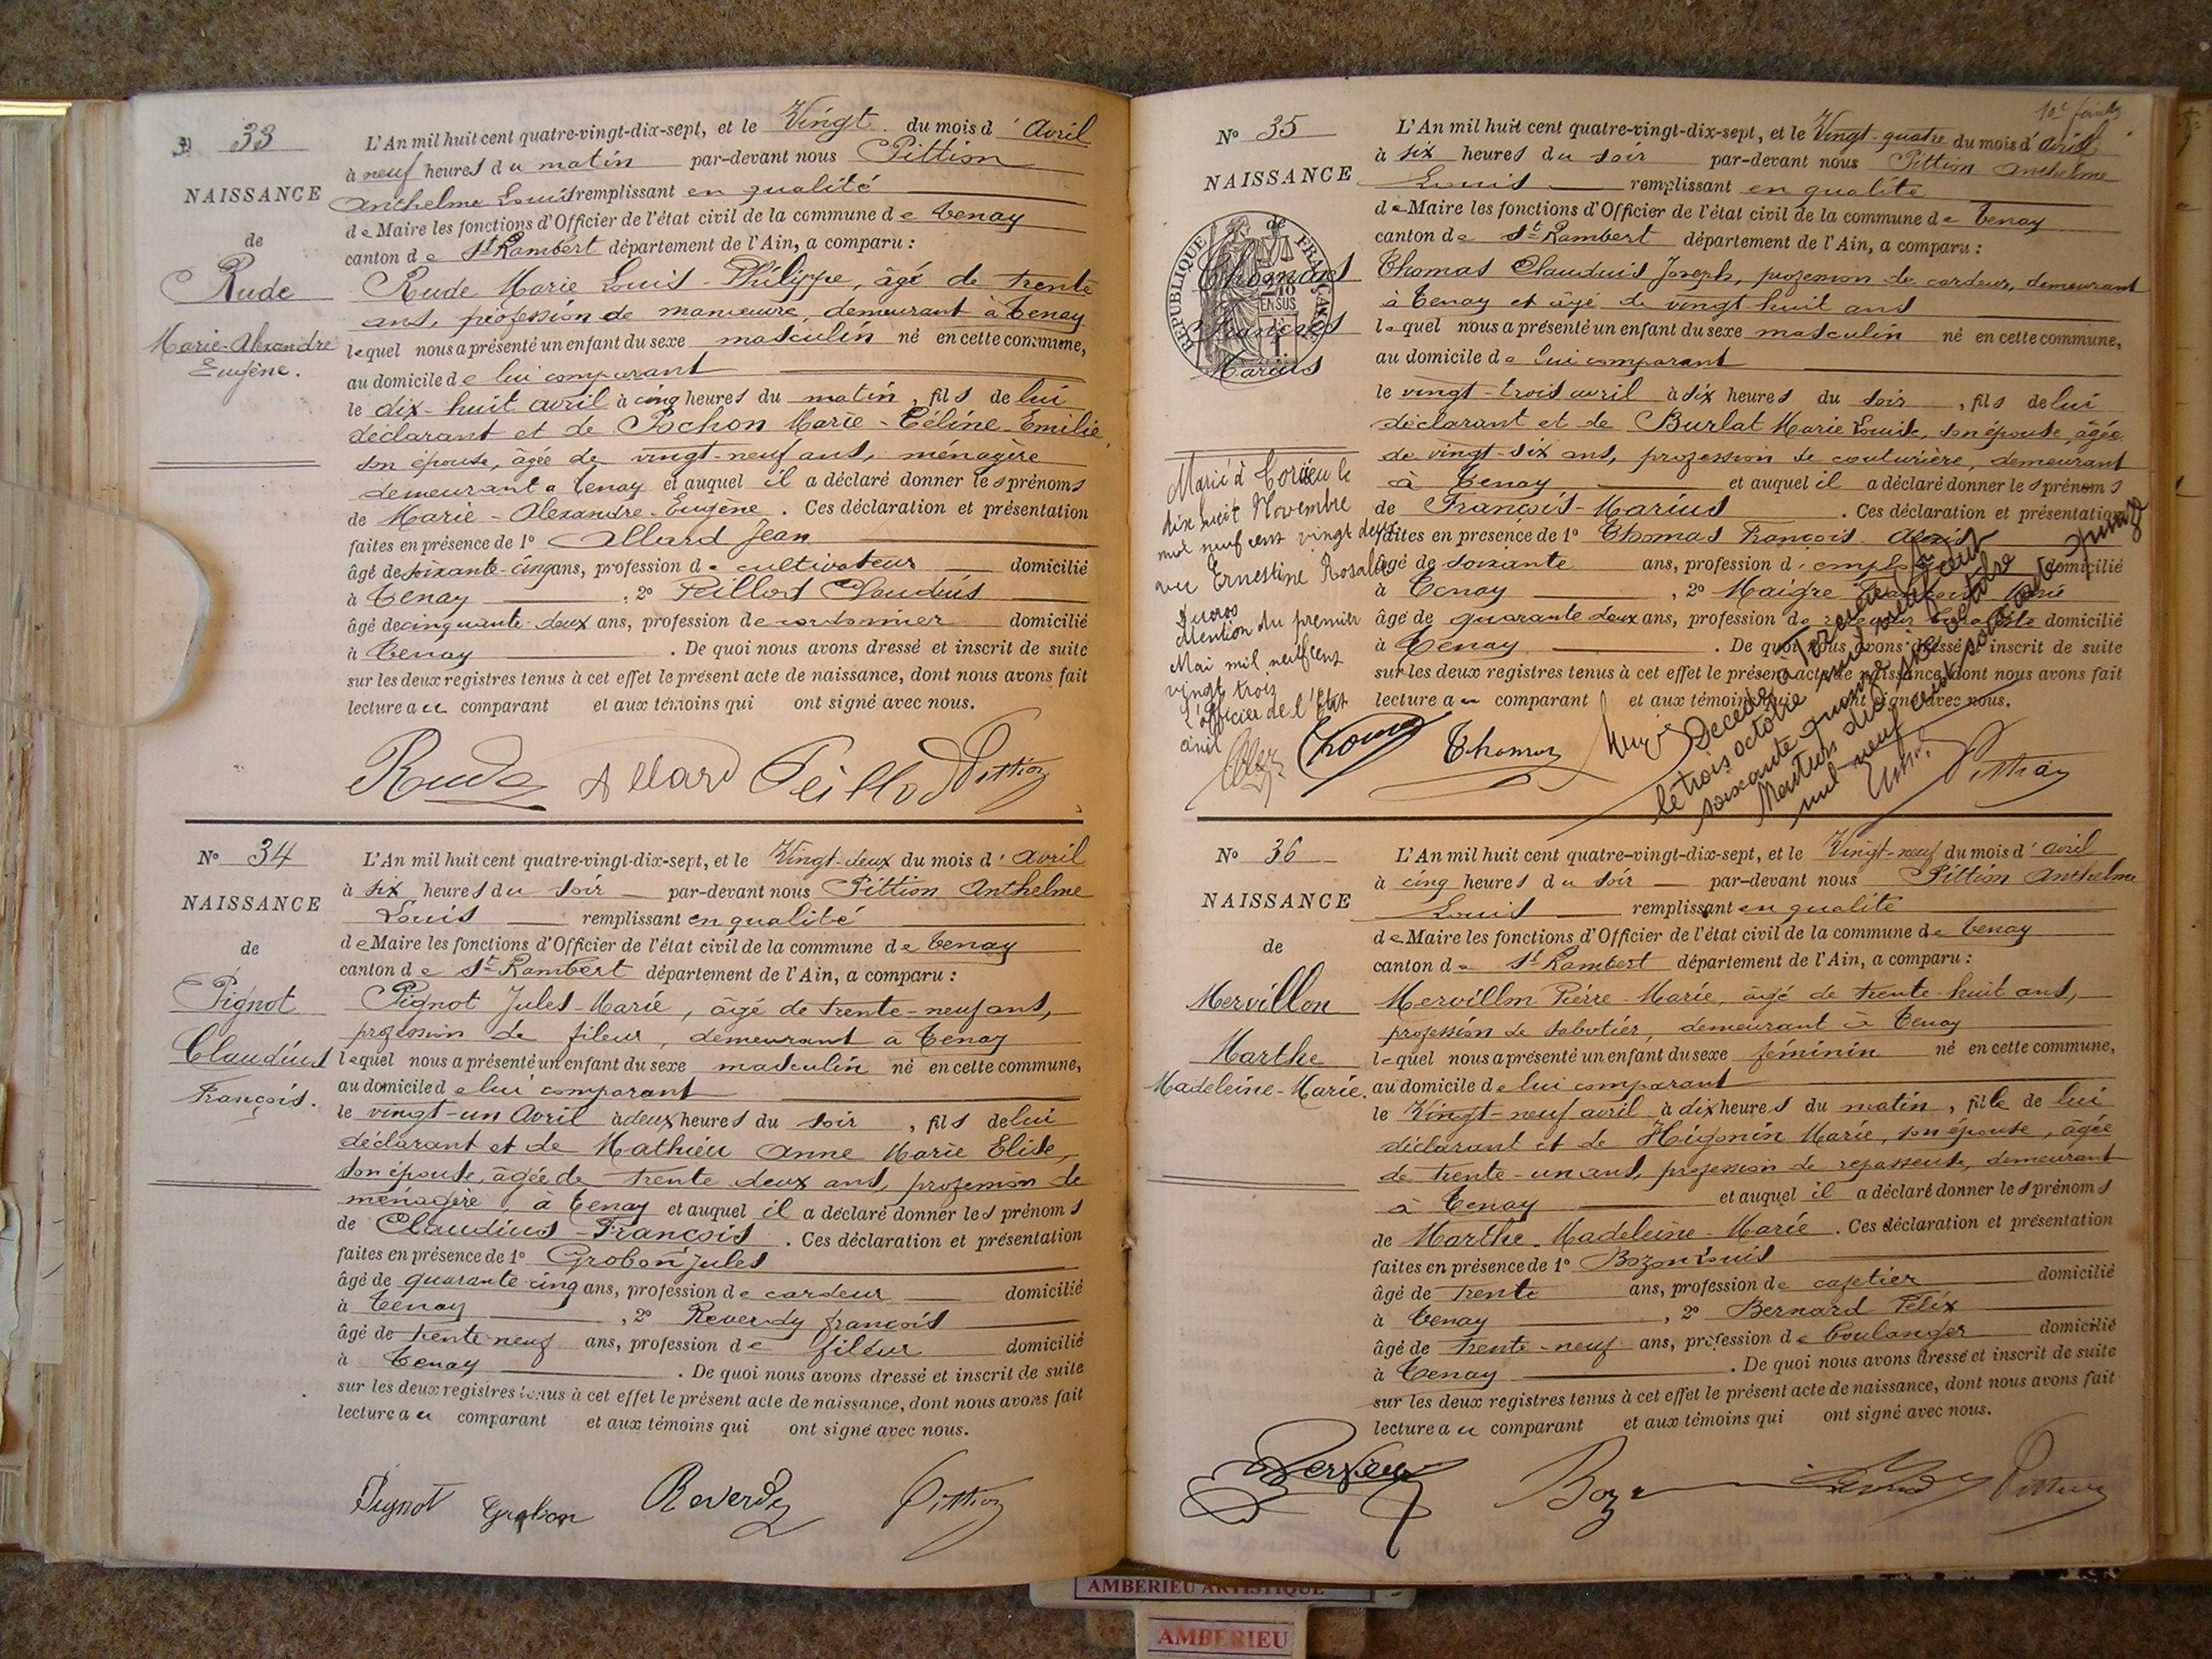 33
L'An mil huit cent quatre-vingt-dix-sept, et le Vingt du mois d'Avril
à neuf heures du matin par-devant nous Pittion
Anthelme Louis remplissant en qualité
NAISSANCE
de Maire les fonctions d'Officier de l'état civil de la commune de Tenay
de
canton de St Rambert département de l'Ain, a comparu :
Rude
Rude Marie Louis-Philippe, âgé de trente
ans, profession de manœuvre, demeurant à Tenay
Marie-Alexandre
Eugène.
lequel nous a présenté un enfant du sexe masculin né en cette commune,
au domicile de lui comparant
le dix-huit avril à cinq heures du matin, fils de lui
déclarant et de Pochon Marie-Céline-Emilie,
son épouse, âgée de vingt-neuf ans, ménagère
demeurant a Tenay et auquel il a déclaré donner les prénoms
de Marie-Alexandre-Eugène. Ces déclaration et présentation
faites en présence de 1º Allard Jean
âgé de soixante-cinq ans, profession de cultivateur domicilié
à Tenay, 2º Peillod Claudius
âgé de cinquante-deux ans, profession de cordonnier domicilié
à Tenay. De quoi nous avons dressé et inscrit de suite
sur les deux registres tenus à cet effet le présent acte de naissance, dont nous avons fait
lecture au comparant et aux témoins qui ont signé avec nous.
Rude Allard Peillod Pittion
Nº 34
L'An mil huit cent quatre-vingt-dix-sept, et le Vingt-deux du mois d'Avril
à six heures du soir par-devant nous Pittion Anthelme
NAISSANCE
Louis remplissant en qualité
de
de Maire les fonctions d'Officier de l'état civil de la commune de Tenay
canton de St Rambert département de l'Ain, a comparu :
Pignot
Pignot Jules-Marie, âgé de trente-neuf ans,
profession de fileur, demeurant à Tenay
Claudius
François.
lequel nous a présenté un enfant du sexe masculin né en cette commune,
au domicile de lui comparant
le vingt-un Avril à deux heures du soir, fils de lui
déclarant et de Mathieu Anne Marie Elise,
son épouse, âgée de trente deux ans, profession de
ménagère, à Tenay et auquel il a déclaré donner les prénoms
de Claudius-François. Ces déclaration et présentation
faites en présence de 1º Grobon Jules
âgé de quarante-cinq ans, profession de cardeur domicilié
à Tenay, 2º Reverdy françois
âgé de trente neuf ans, profession de fileur domicilié
à Tenay. De quoi nous avons dressé et inscrit de suite
sur les deux registres tenus à cet effet le présent acte de naissance, dont nous avons fait
lecture au comparant et aux témoins qui ont signé avec nous.
Pignot Grobon Reverdy Pittion
Nº 35
L'An mil huit cent quatre-vingt-dix-sept, et le Vingt-quatre du mois d'avril
à six heures du soir par-devant nous Pittion Anthelme
NAISSANCE
Louis remplissant en qualité
de Maire les fonctions d'Officier de l'état civil de la commune de Tenay
de
canton de St Rambert département de l'Ain, a comparu :
RÉPUBLIQUE FRANÇAISE
EN SUS
Thomas
François
Marius
Thomas Claudius Joseph, profession de cardeur, demeurant
à Tenay et âgé de vingt-huit ans
lequel nous a présenté un enfant du sexe masculin né en cette commune,
au domicile de lui comparant
le vingt-trois avril à six heures du soir, fils de lui
déclarant et de Burlat Marie Louise, son épouse, âgée
de vingt-six ans, profession de couturière, demeurant
à Tenay et auquel il a déclaré donner les prénoms
de François-Marius. Ces déclaration et présentation
faites en présence de 1º Thomas François Alexis
âgé de soixante ans, profession d'employé domicilié
à Tenay, 2º Maigre
âgé de quarante deux ans, profession de domicilié
à Tenay. De quoi nous avons dressé et inscrit de suite
sur les deux registres tenus à cet effet le présent acte de naissance, dont nous avons fait
lecture au comparant et aux témoins qui ont signé avec nous.
Marié à le
dix huit Novembre
mil neuf cent vingt deux
avec Ernestine Rosalie
Ducros
Mention du premier
Mai mil neuf cent
vingt trois
L'officier de l'Etat
civil
Décédé à
le trois octobre mil neuf cent
soixante quinze
Mention dix sept octobre
mil neuf cent soixante quinze
Thomas Pittion
Nº 36
L'An mil huit cent quatre-vingt-dix-sept, et le Vingt-neuf du mois d'avril
à cinq heures du soir par-devant nous Pittion Anthelme
NAISSANCE
Louis remplissant en qualité
de
de Maire les fonctions d'Officier de l'état civil de la commune de Tenay
canton de St Rambert département de l'Ain, a comparu :
Mervillon
Mervillon Pierre-Marie, âgé de trente-huit ans,
profession de sabotier, demeurant à Tenay
Marthe
Madeleine-Marie.
lequel nous a présenté un enfant du sexe féminin né en cette commune,
au domicile de lui comparant
le Vingt-neuf avril à dix heures du matin, fille de lui
déclarant et de Hugonin Marie, son épouse, âgée
de trente-un ans, profession de repasseuse, demeurant
à Tenay et auquel il a déclaré donner les prénoms
de Marthe-Madeleine-Marie. Ces déclaration et présentation
faites en présence de 1º Bozon Louis
âgé de trente ans, profession de cafetier domicilié
à Tenay, 2º Bernard Félix
âgé de trente-neuf ans, profession de boulanger domicilié
à Tenay. De quoi nous avons dressé et inscrit de suite
sur les deux registres tenus à cet effet le présent acte de naissance, dont nous avons fait
lecture au comparant et aux témoins qui ont signé avec nous.
Pittion
AMBERIEU ARTISTIQUE
AMBERIEU